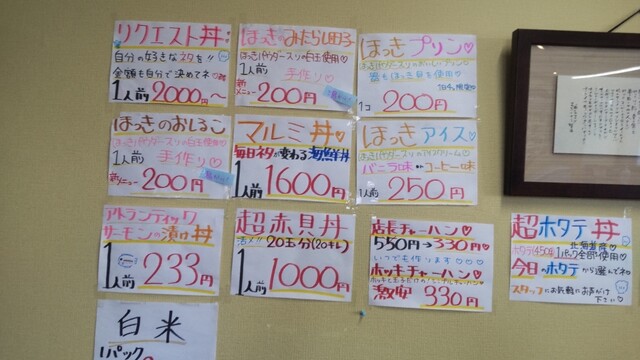 リクエスト丼
自分の好きなネタを!!
金額も自分で決めてネ♡
1人前 2000円~
ほっきのみたらし団子
ほっきパウダー入りの白玉使用♡
1人前 手作り♡
新メニュー 200円
ほっきプリン♡
ほっきパウダー入りのおいしいプリン♡
1コ 200円
ほっきのおしるこ
ほっきパウダー入りの白玉使用♡
1人前 手作り♡
新メニュー 200円
マルミ丼♡
毎日ネタが変わる海鮮丼
1人前 1600円
ほっきアイス♡
ほっきパウダー入りのアイスクリーム♡
バニラ味 or コーヒー味
1人前 250円
アトランティック
サーモンの漬け丼
1人前 233円
超赤貝丼
活〆!! 20玉分(20キレ)
1人前 1000円
店長チャーハン♡
550円→330円♡
いつでも作ります♡♡♡
ホッキチャーハン♡
激安 330円
超ホタテ丼
北海道産♡
ホタテ(450g)1パック全部使用♡
今日のホタテから選んでネ
スタッフにお気軽にお声がけ
下さい♡
白米
1パック